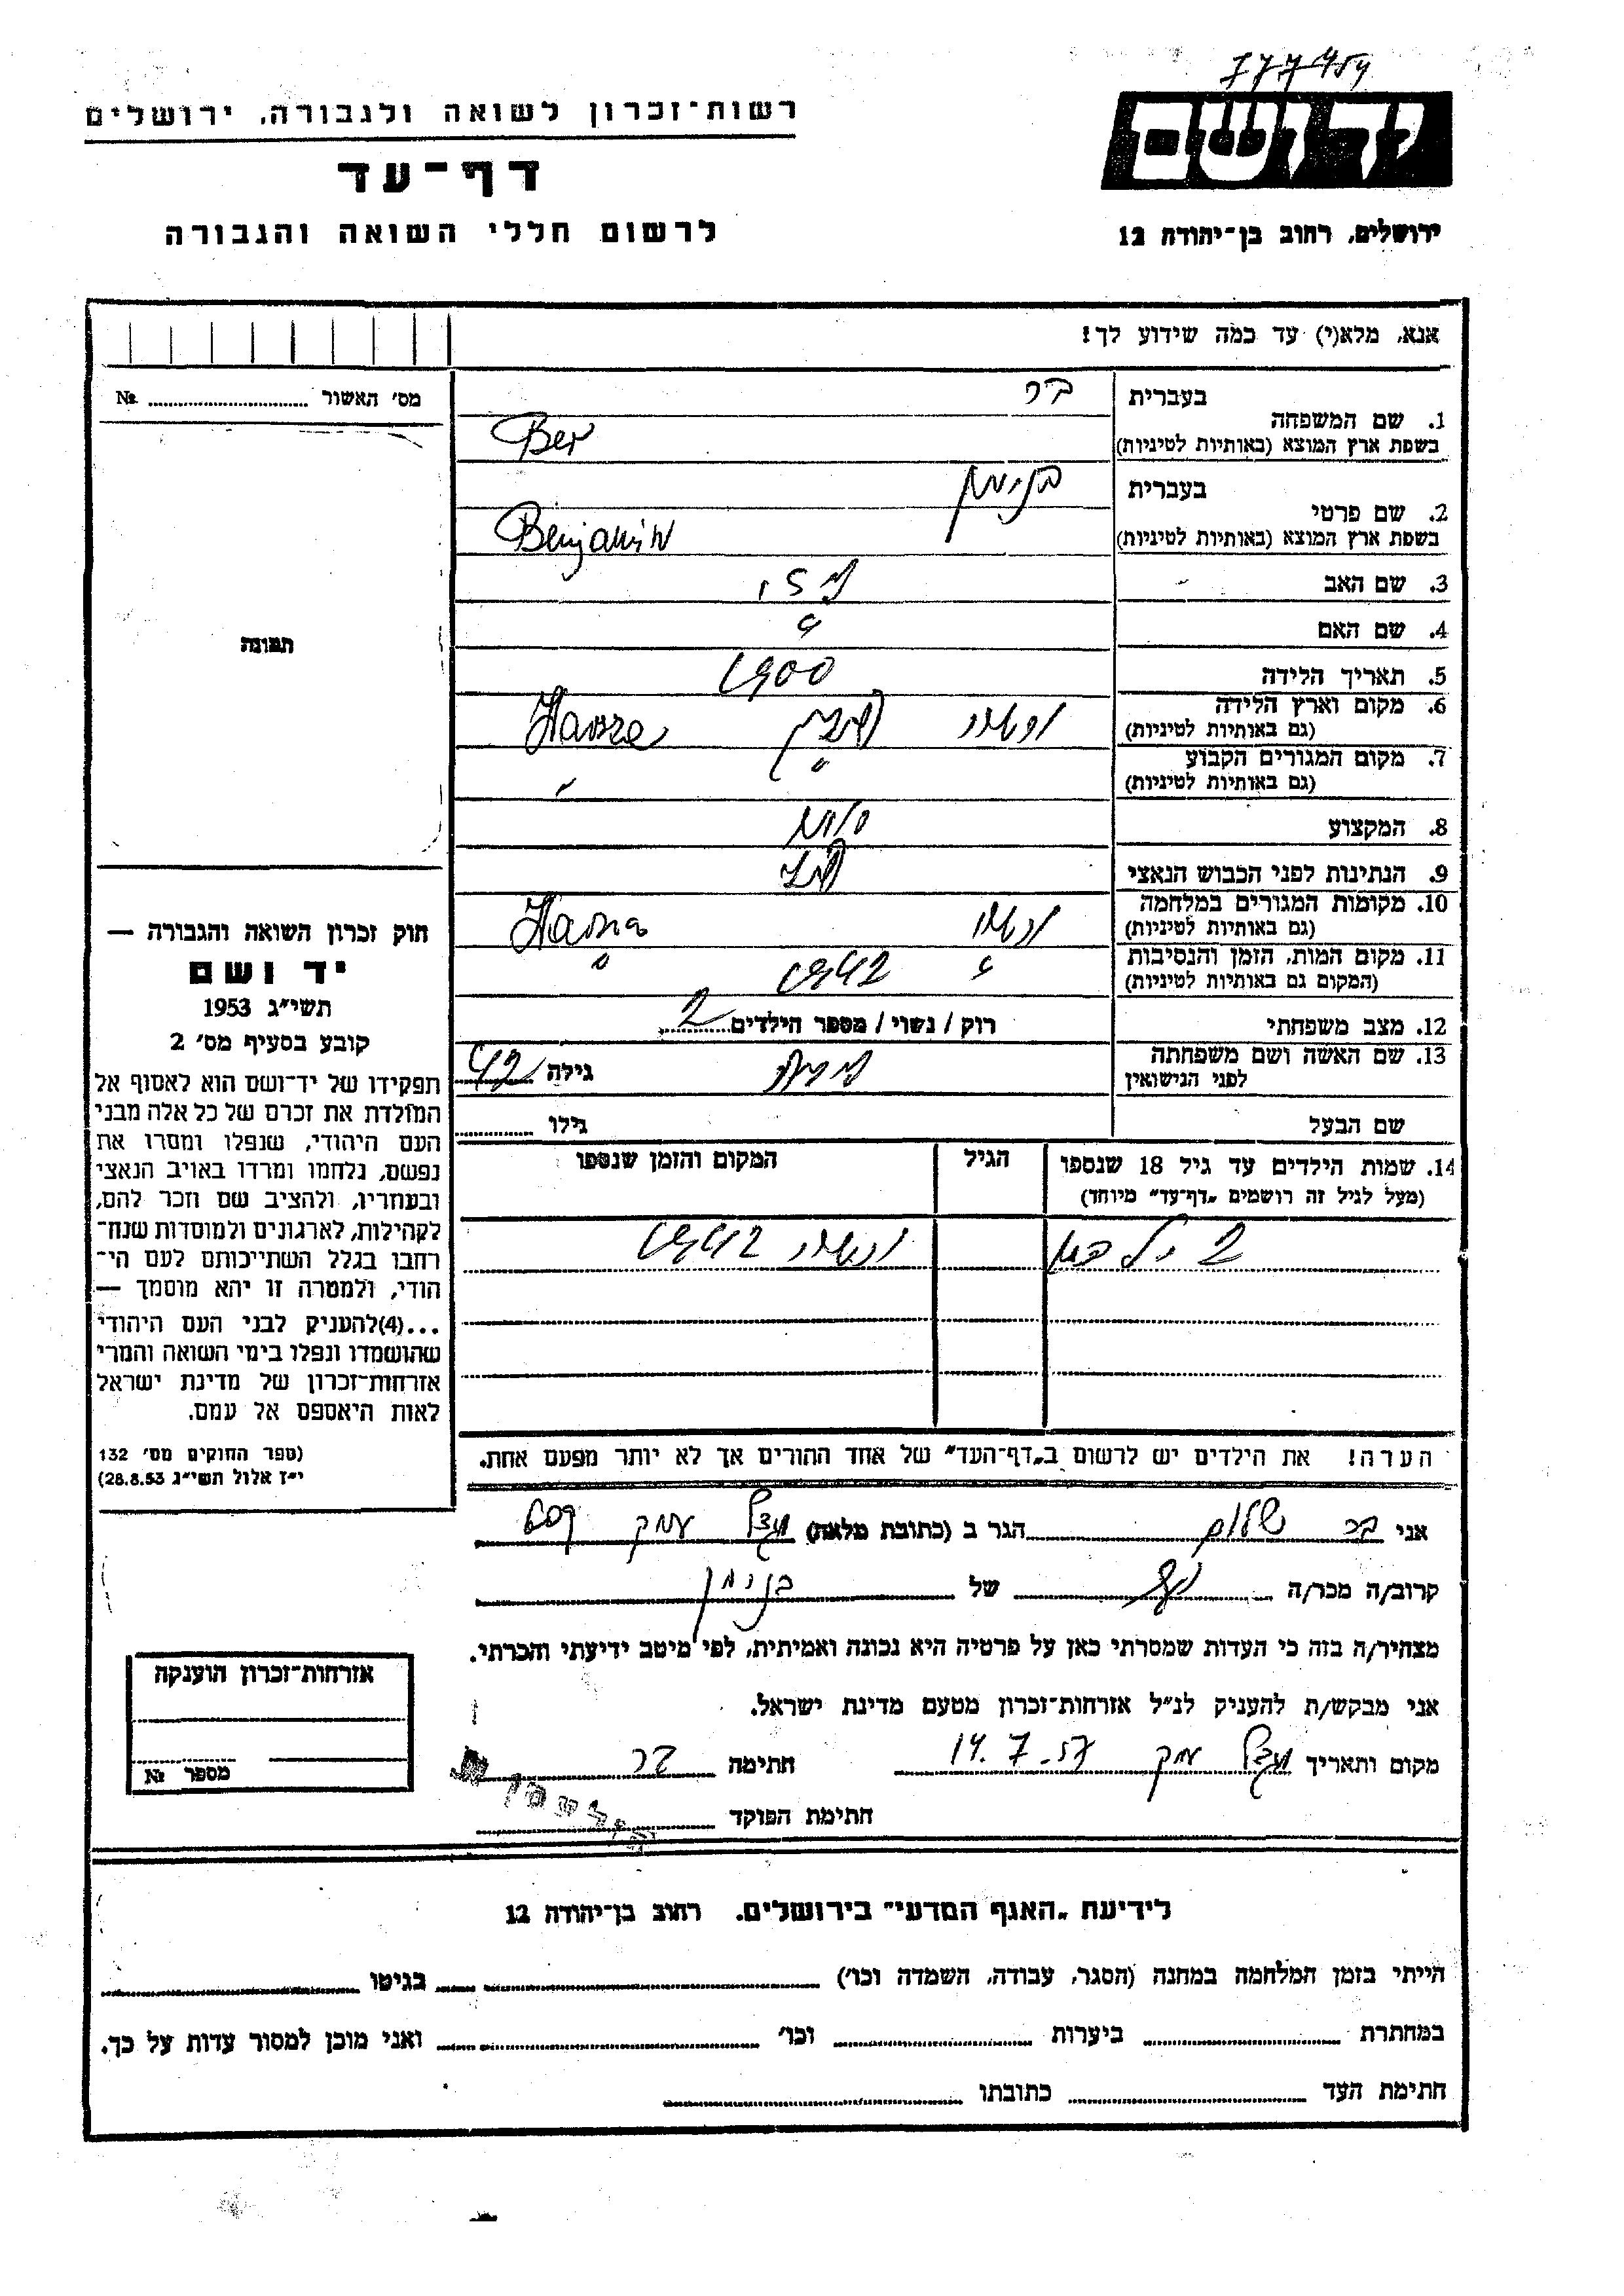 רשות־זכרון לשואה ולגבורה, ירושלים
דף־עד
לרשום חללי השואה והגבורה
יד ושם
ירושלים, רחוב בן־יהודה 12
אנא, מלא(י) עד כמה שידוע לך!
מס׳ האשור № 
1. שם המשפחה בעברית בר
בשפת ארץ המוצא (באותיות לטיניות) Ber
2. שם פרטי בעברית בנימין
בשפת ארץ המוצא (באותיות לטיניות) Benjamin
3. שם האב
4. שם האם
5. תאריך הלידה 1900
6. מקום וארץ הלידה
(גם באותיות לטיניות)
7. מקום המגורים הקבוע
(גם באותיות לטיניות)
8. המקצוע
9. הנתינות לפני הכבוש הנאצי
10. מקומות המגורים במלחמה
(גם באותיות לטיניות)
11. מקום המות, הזמן והנסיבות 1942
(המקום גם באותיות לטיניות)
12. מצב משפחתי רוק / נשוי / מספר הילדים 2
13. שם האשה ושם משפחתה גילה 42
לפני הנישואין
שם הבעל גילו
14. שמות הילדים עד גיל 18 שנספו הגיל המקום והזמן שנספו
(מעל לגיל זה רושמים „דף־עד" מיוחד)
2 ילדים 1942
הערה! את הילדים יש לרשום ב„דף־העד" של אחד ההורים אך לא יותר מפעם אחת.
תמונה
חוק זכרון השואה והגבורה —
יד ושם
תשי״ג 1953
קובע בסעיף מס׳ 2
תפקידו של יד־ושם הוא לאסוף אל
המולדת את זכרם של כל אלה מבני
העם היהודי, שנפלו ומסרו את
נפשם, נלחמו ומרדו באויב הנאצי
ובעוזריו, ולהציב שם וזכר להם,
לקהילות, לארגונים ולמוסדות שנח־
רחבו בגלל השתייכותם לעם הי־
הודי, ולמטרה זו יהא מוסמך —
...(4)להעניק לבני העם היהודי
שהושמדו ונפלו בימי השואה והמרי
אזרחות־זכרון של מדינת ישראל
לאות היאספם אל עמם.
(ספר החוקים מס׳ 132
י״ז אלול תשי״ג 28.8.53)
אני בר שלום הגר ב (כתובת מלאה)
קרוב/ה מכר/ה של בנימין
מצהיר/ה בזה כי העדות שמסרתי כאן על פרטיה היא נכונה ואמיתית, לפי מיטב ידיעתי והכרתי.
אני מבקש/ת להעניק לנ״ל אזרחות־זכרון מטעם מדינת ישראל.
מקום ותאריך 14.7.57 חתימה בר
חתימת הפוקד
אזרחות־זכרון הוענקה
מספר №
לידיעת „האגף המדעי" בירושלים, רחוב בן־יהודה 12
הייתי בזמן המלחמה במחנה (הסגר, עבודה, השמדה וכו׳) בגיטו
במחתרת ביערות וכו׳ ואני מוכן למסור עדות על כך.
חתימת העד כתובתו